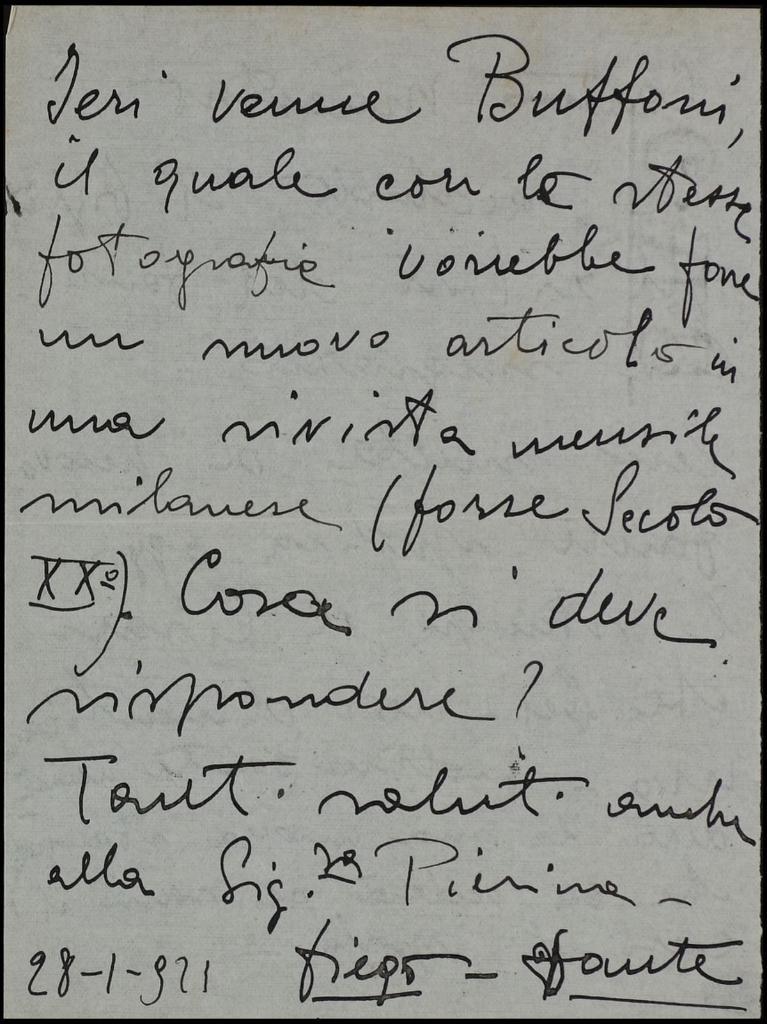 Ieri venne Buffoni,
il quale con le stesse
fotografie vorrebbe fare
un nuovo articolo in
una rivista mensile
milanese (forse Secolo
XXº). Cosa si deve
rispondere?
Tanti saluti anche
alla Sig.ra Pierina -
28-1-921 Diego - Dante